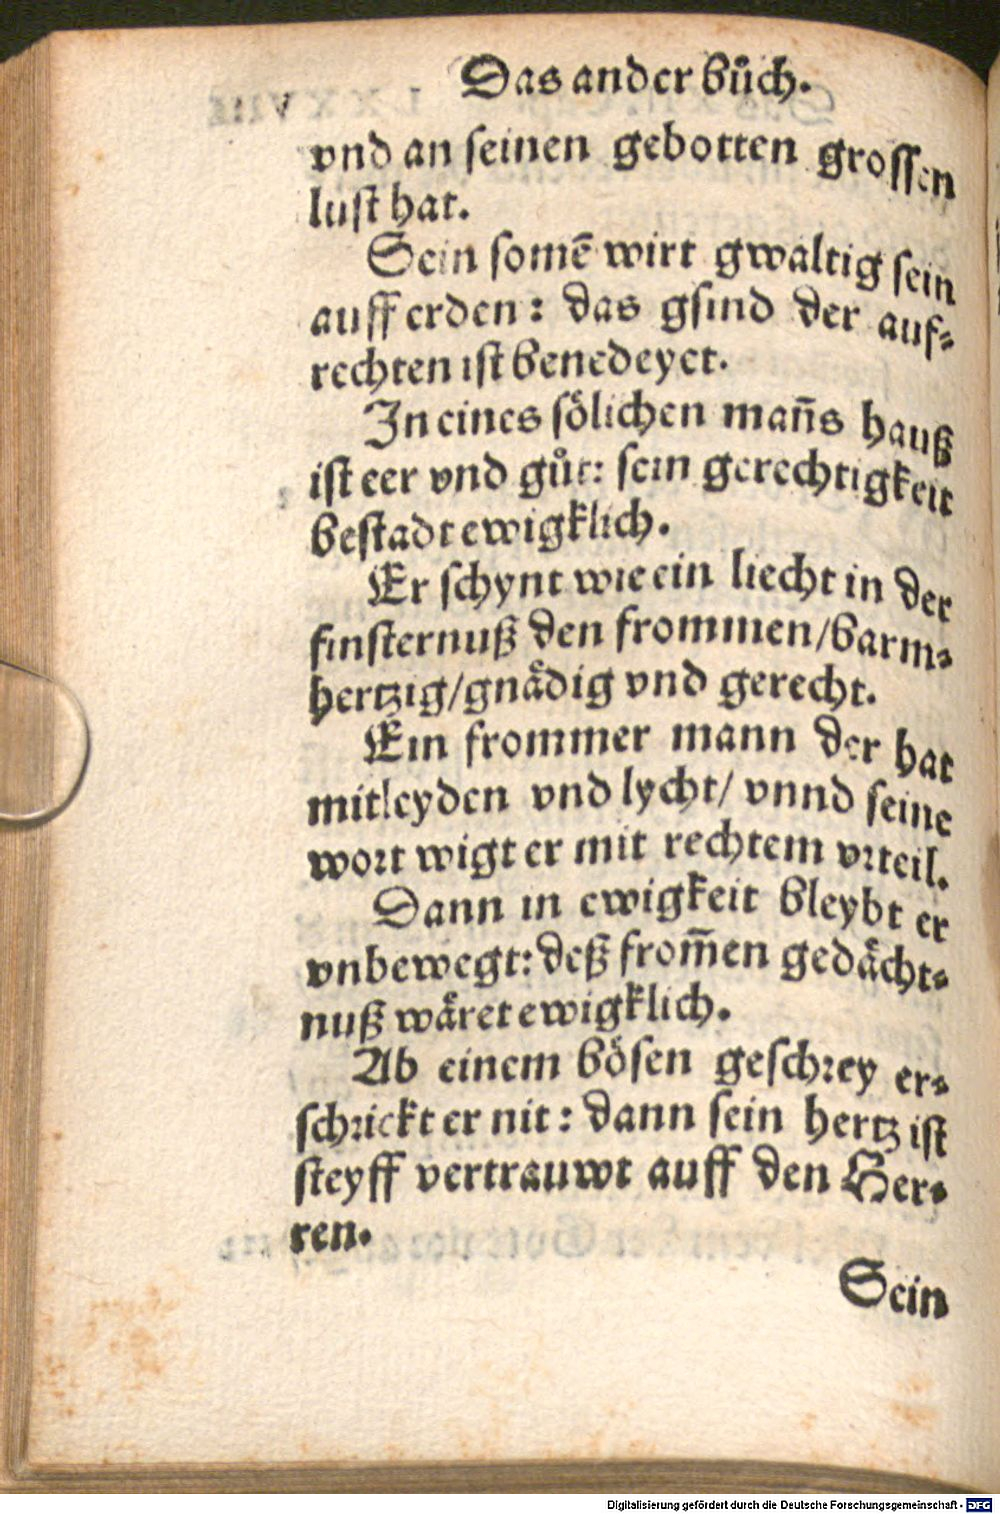 Das ander bůch.
vnd an seinen gebotten grossen
lust hat.
Sein somē wirt gwaltig sein
auff erden: das gsind der auf⸗
rechten ist benedeyet.
In eines sölichen man̄s hauß
ist eer vnd gůt: sein gerechtigkeit
bestadt ewigklich.
Er schynt wie ein liecht in der
finsternuß den frommen/barm⸗
hertzig/gnädig vnd gerecht.
Ein frommer mann der hat
mitleyden vnd lycht/ vnnd seine
wort wigt er mit rechtem vrteil.
Dann in ewigkeit bleybt er
vnbewegt: deß from̄en gedächt⸗
nuß wäret ewigklich.
Ab einem bösen geschrey er⸗
schrickt er nit: dann sein hertz ist
steyff vertrauwt auff den Her⸗
ren.
Sein
Digitalisierung gefördert durch die Deutsche Forschungsgemeinschaft - DFG